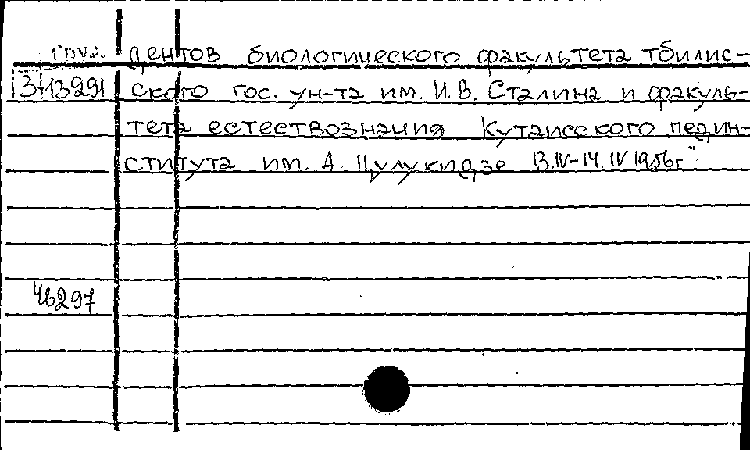 груз. дентов биологического факультета тбилис-
3413291 ского гос. ун-та им. И.В. Сталина и факуль-
тета естествознания Кутаисского педин-
ститута им. А. Цулукидзе 13.IV-14.IV 1956г"
46297